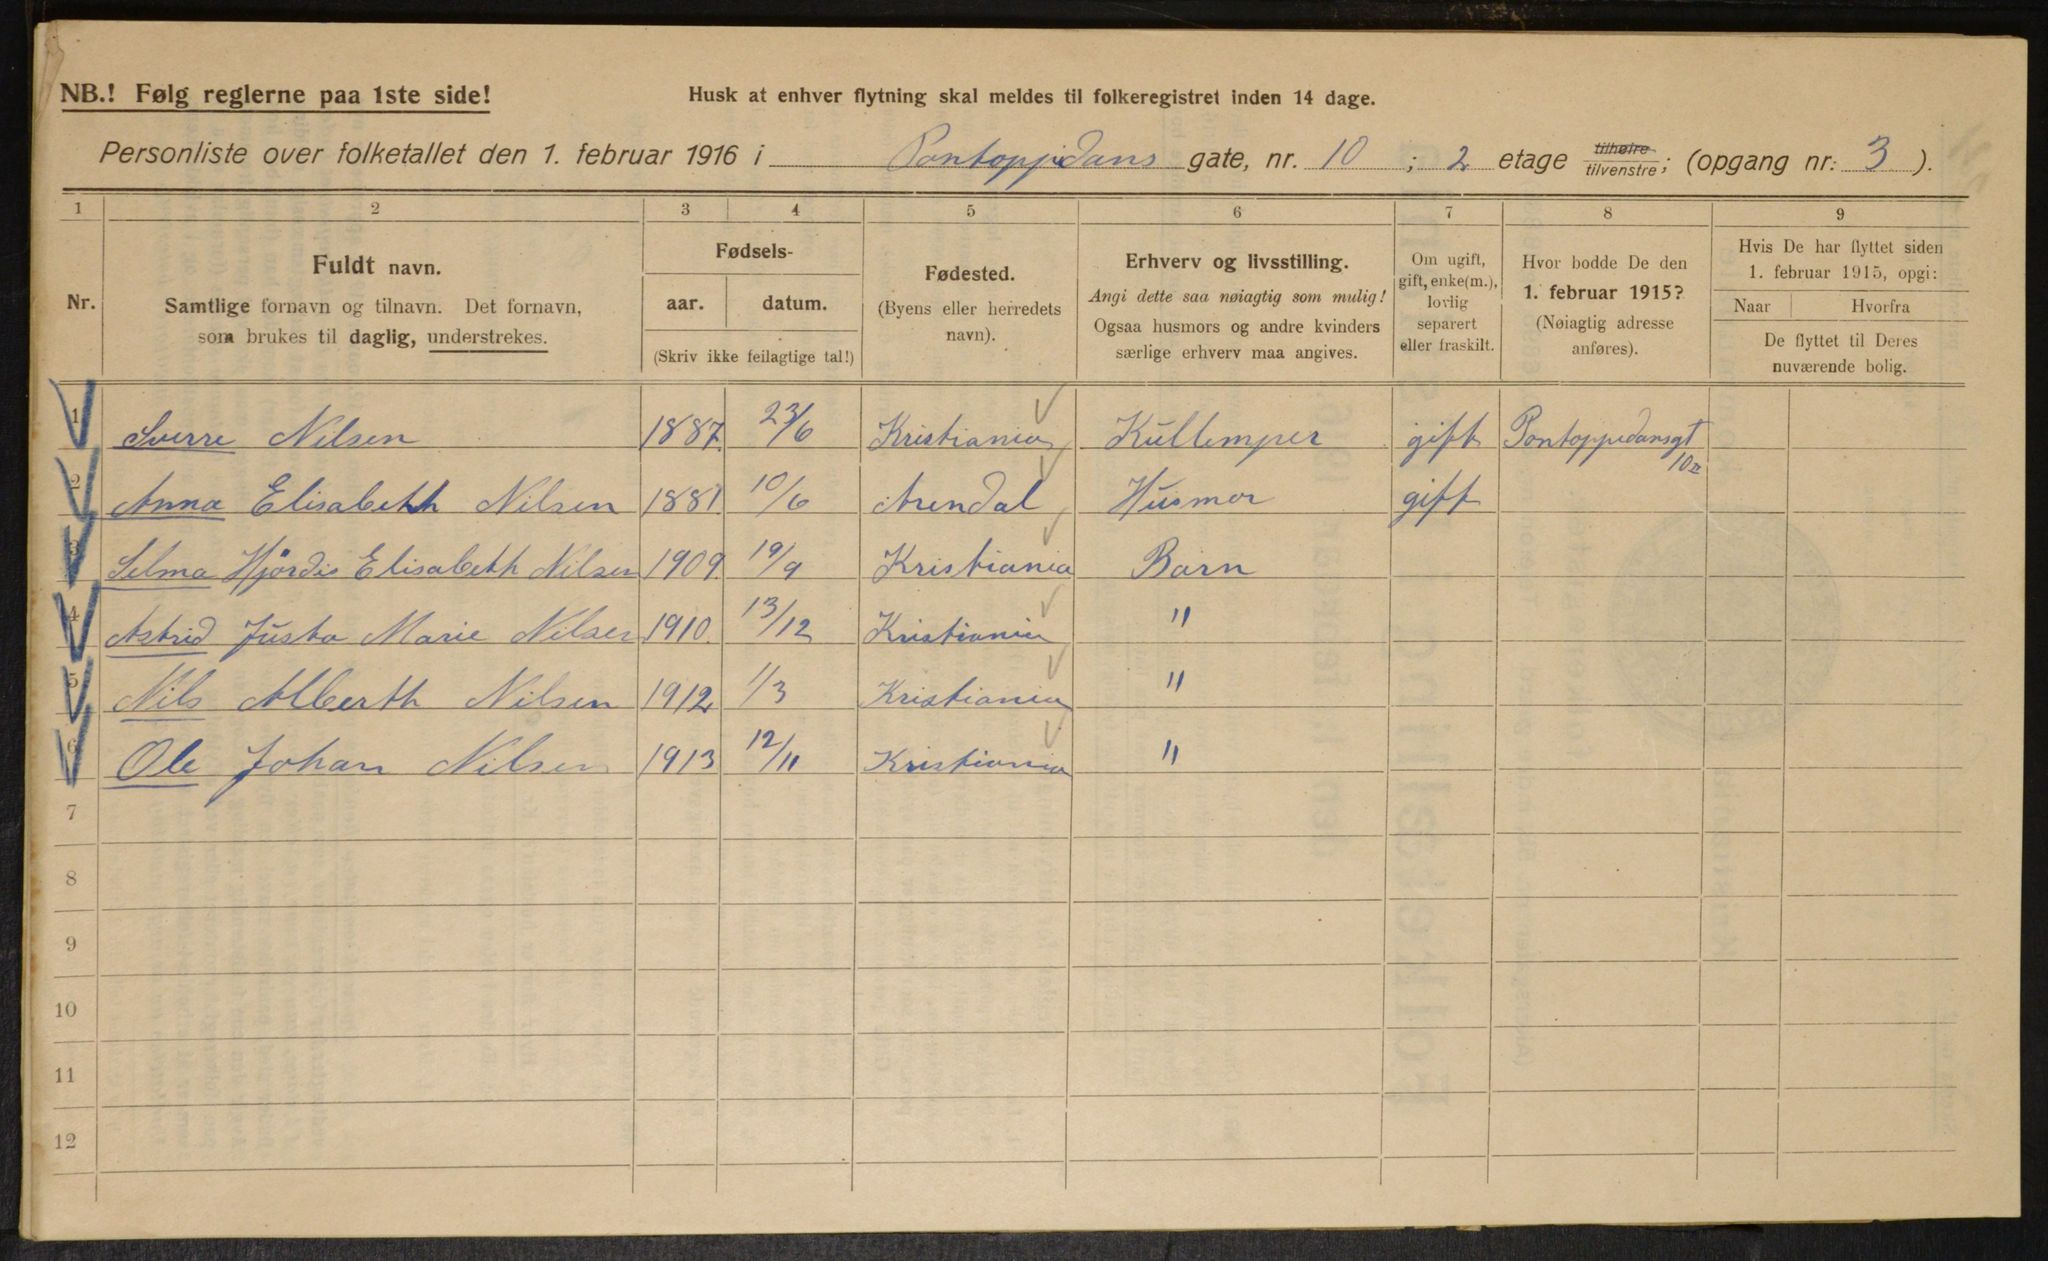 NB.! Følg reglerne paa 1ste side!
Husk at enhver flytning skal meldes til folkeregistret inden 14 dage.
Personliste over folketallet den 1. februar 1916 i Pontoppidans gate, nr. 10 ; 2 etage tilhøire / tilvenstre; (opgang nr: 3 ).
1 2 3 4 5 6 7 8 9
Nr.
Fuldt navn.
Samtlige fornavn og tilnavn. Det fornavn,
som brukes til daglig, understrekes.
Fødsels-
aar. datum.
(Skriv ikke feilagtige tal!)
Fødested.
(Byens eller herredets
navn).
Erhverv og livsstilling.
Angi dette saa nøiagtig som mulig!
Ogsaa husmors og andre kvinders
særlige erhverv maa angives.
Om ugift,
gift, enke(m.),
lovlig
separert
eller fraskilt.
Hvor bodde De den
1. februar 1915?
(Nøiagtig adresse
anføres).
Hvis De har flyttet siden
1. februar 1915, opgi:
Naar Hvorfra
De flyttet til Deres
nuværende bolig.
1 Sverre Nilsen 1887. 23/6 Kristiania Kullemper gift Pontoppedansgt 10 II
2 Anna Elisabeth Nilsen 1881. 10/6 Arendal Husmor gift
3 Selma Hjördis Elisabeth Nilsen 1909. 19/9 Kristiania Barn
4 Astrid Justa Marie Nilsen 1910. 13/12 Kristiania "
5 Nils Alberth Nilsen 1912 1/3 Kristiania "
6 Ole Johan Nilsen 1913 12/11 Kristiania "
7
8
9
10
11
12